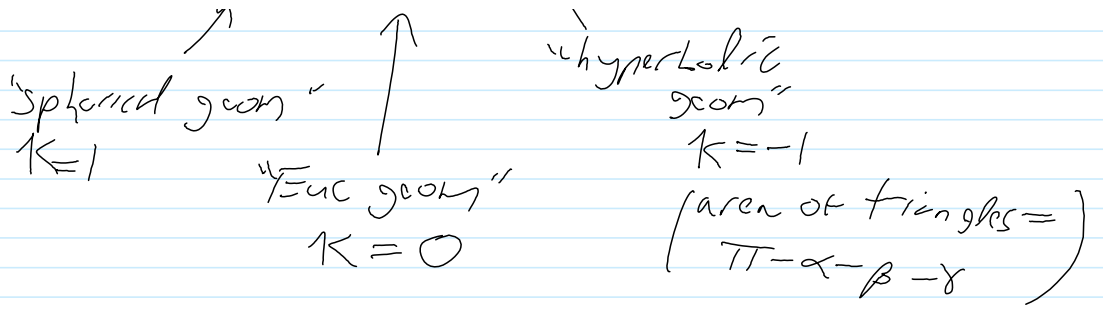 "spherical geom"
K=1
"Euc geom"
K = 0
"hyperbolic
geom"
K = -1
(area of triangles =
π - α - β - γ)